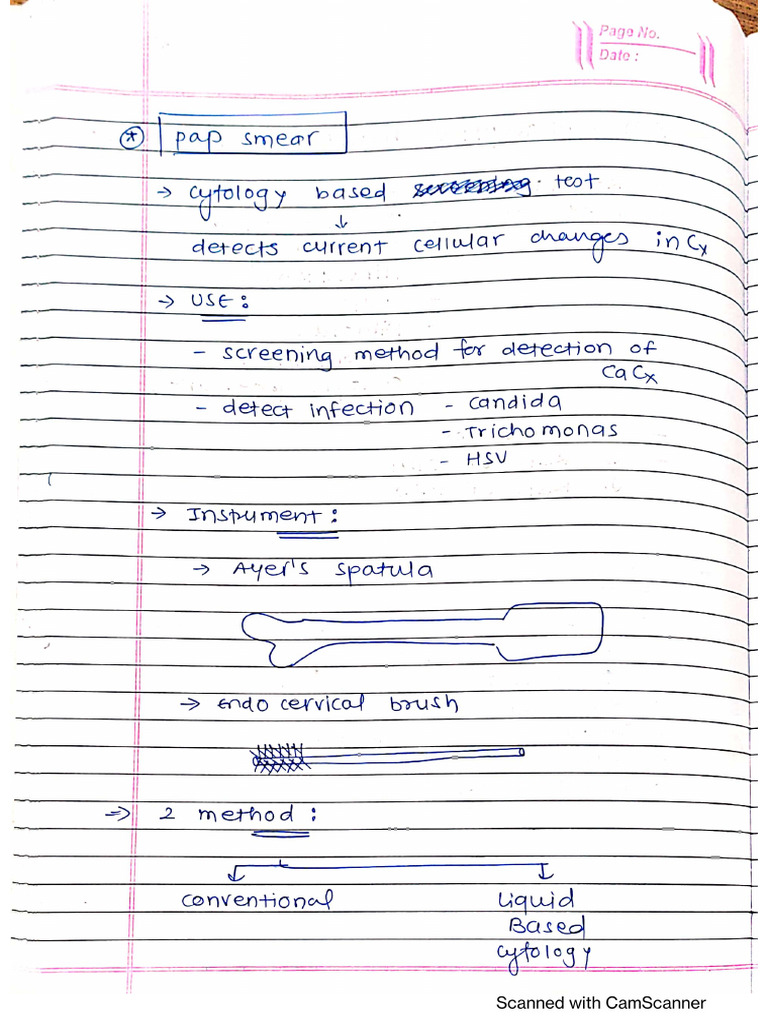 Page No.
Date :
* pap smear
→ cytology based test
↓
detects current cellular changes in Cx
→ USE :
- screening method for detection of
CaCx
- detect infection - candida
- Trichomonas
- HSV
→ Instrument :
→ Ayer's spatula
→ Endo cervical brush
⇒ 2 method :
conventional Liquid
Based
cytology
Scanned with CamScanner